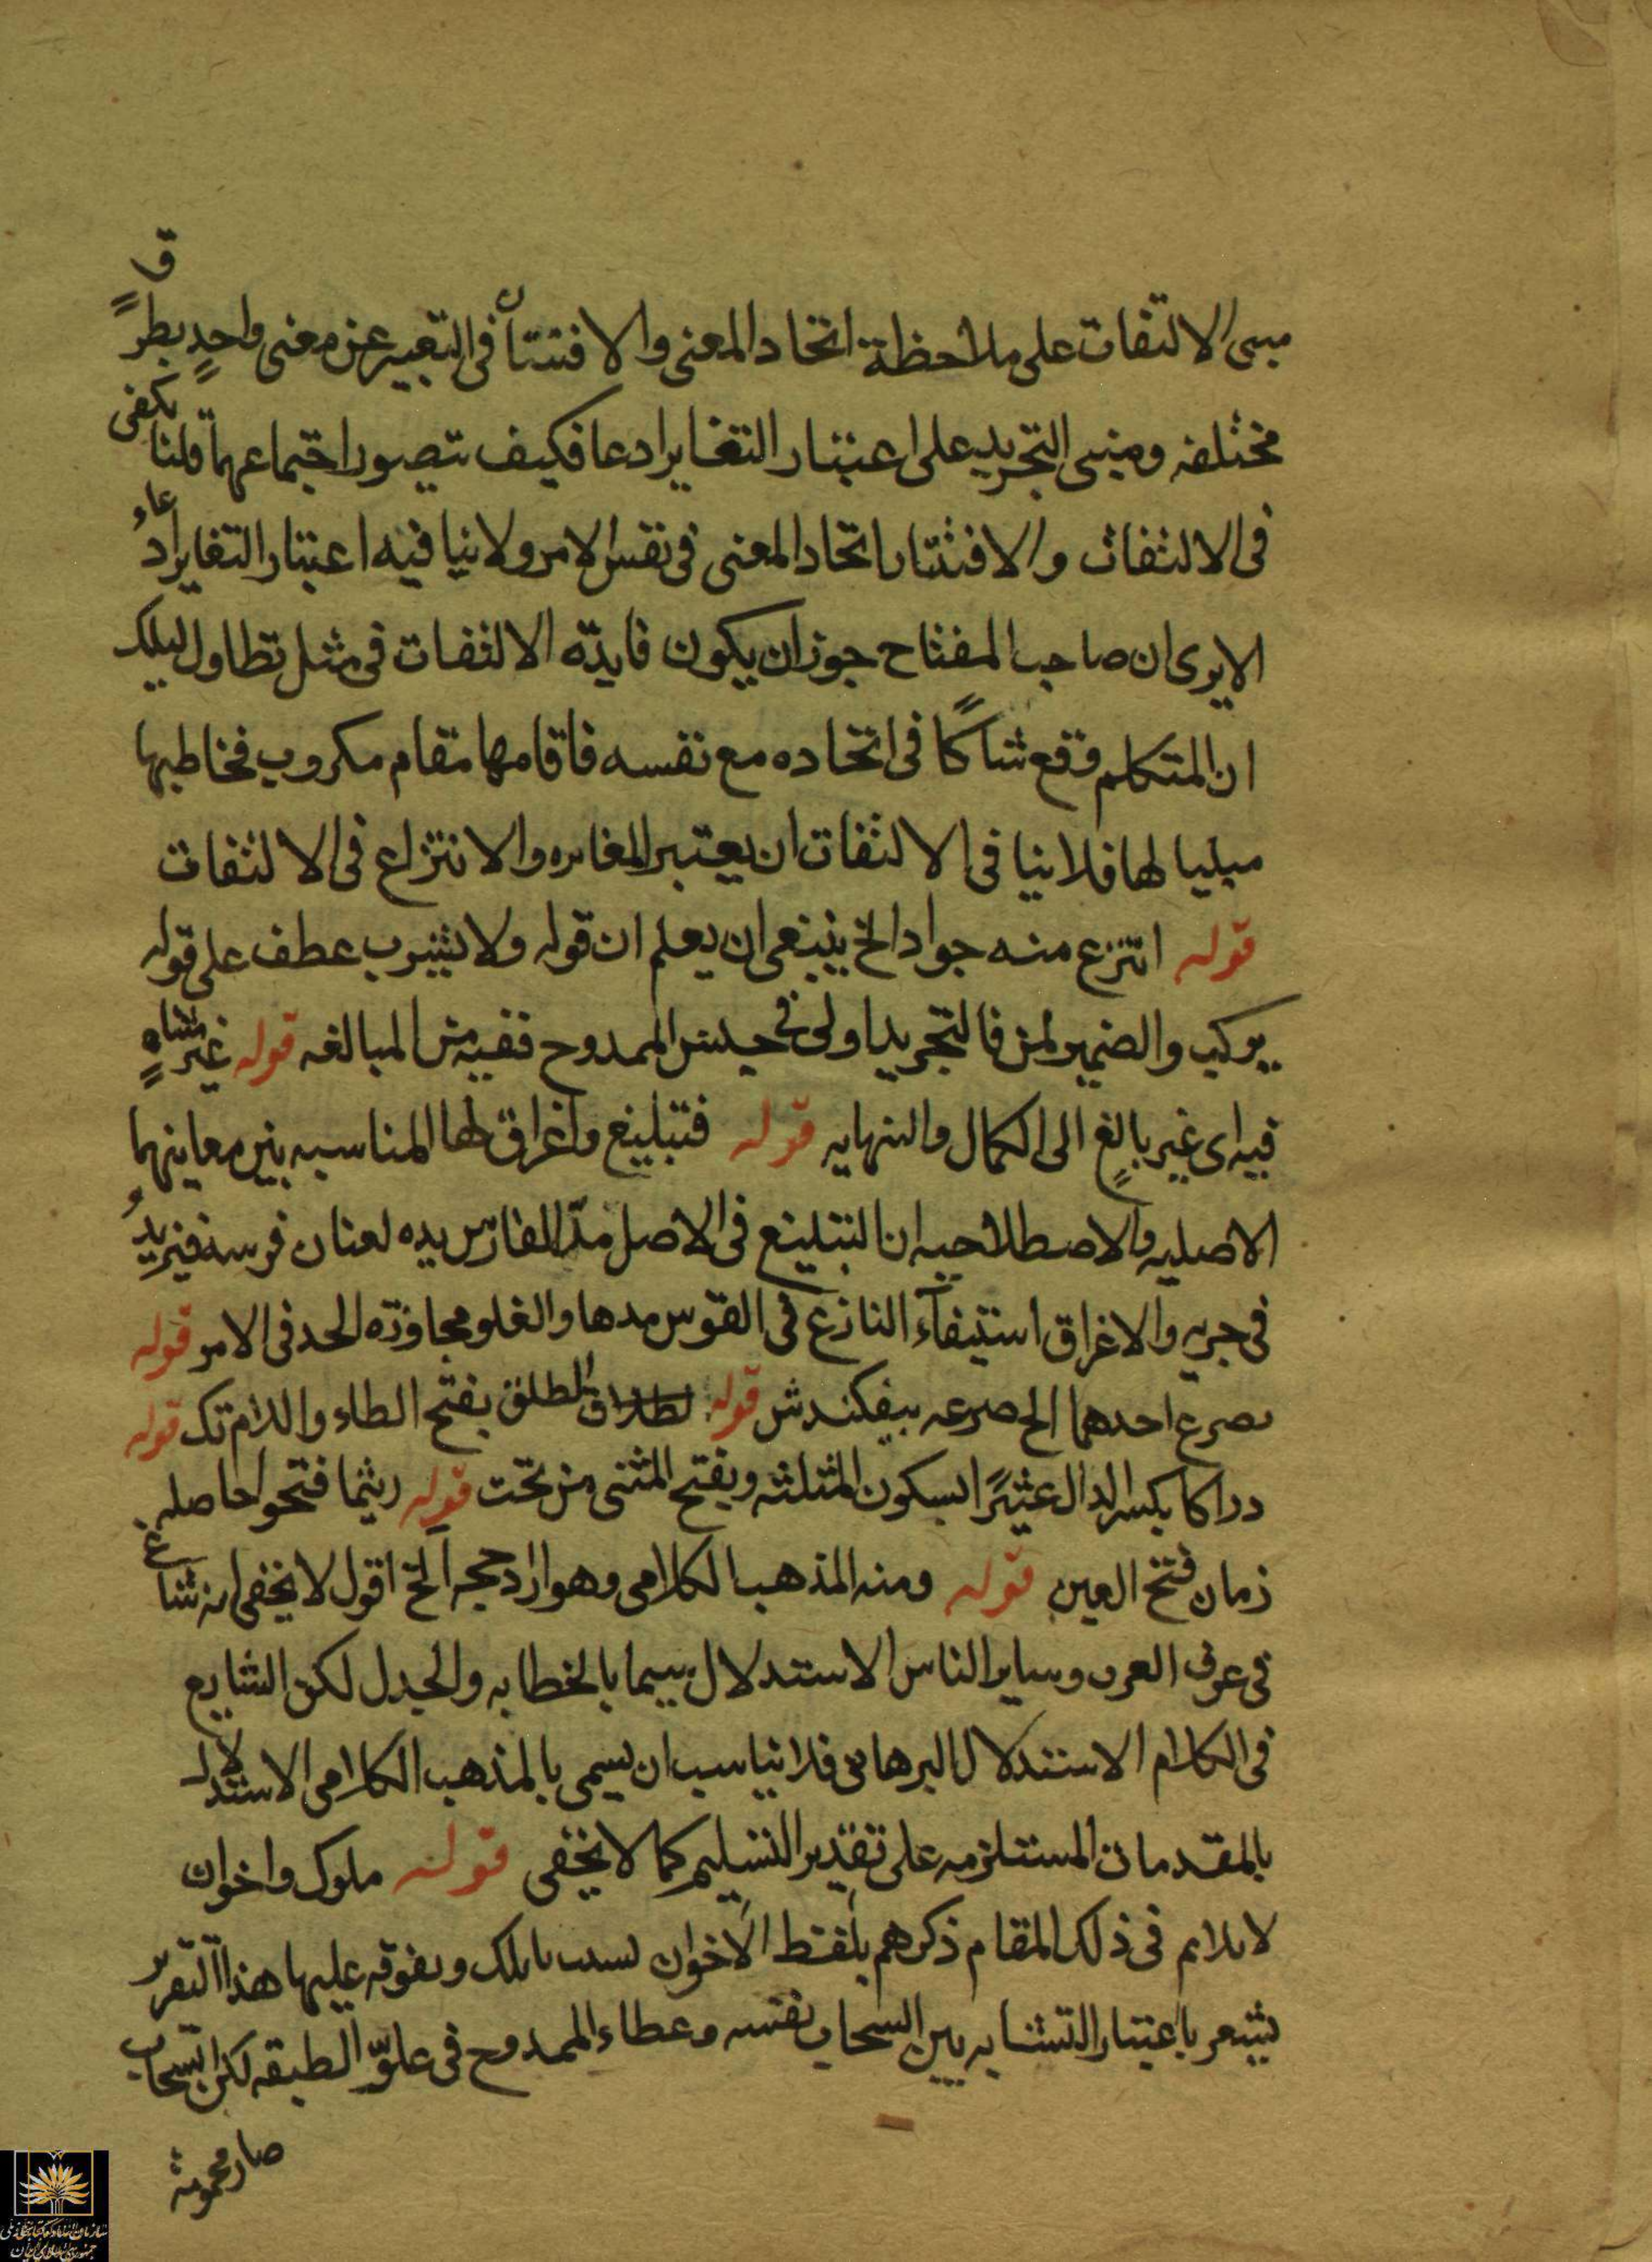 مبنى الالتفات على ملاحظة اتحاد المعنى والافتنان فى التعبير عن معنى واحدٍ بطرقٍ
مختلفه ومبنى التجريد على اعتبار التغاير ادعا فكيف تتصور اجتماعهما قلنا يكفى
فى الالتفات والافتنان اتحاد المعنى فى نفس الامر ولا ينافيه اعتبار التغاير ادعاء
الا يرى ان صاحب المفتاح جوز ان يكون فايدته الالتفات فى مثل تطاول ليلك
ان المتكلم وقع شاكًا فى اتحاده مع نفسه فاقامها مقام مكروب فخاطبها
مسليا لها فلا ينافى الالتفات ان يعتبر المغايره والانتزاع فى الالتفات
قوله انتزع منه جواد الخ ينبغى ان يعلم ان قوله ولا يشرب عطف على قوله
يركب والضمير لمن فالتجريد اولى فى حبس الممدوح ففيه من المبالغه قوله غير متناهٍ
فيه اى غير بالغٍ الى الكمال والنهايه قوله فتبليغ واغراق لها المناسبه بين معاينهما
الاصليه والاصطلاحيه ان التبليغ فى الاصل مدّ الفارس يده لعنان فرسه فيزيد
فى جريه والاغراق استيفآء النازع فى القوس مدها والغلو مجاوزته الحد فى الامر قوله
يصرع احدهما الخ صرعه بيفكندش قوله الطلق بفتح الطاء واللام تك قوله
دراكا بكسر الدال عثيرًا بسكون المثلثه وبفتح المثنى من تحت قوله ريثما فتحوا حاصله
زمان فتح العين قوله ومنه المذهب الكلامى وهو ايراد حجه الخ اقول لا يخفى انه شاع
فى عرف العرب وساير الناس الاستدلال سيما بالخطابه والجدل لكن الشايع
فى الكلام الاستدلال البرهانى فلا يناسب ان يسمى بالمذهب الكلامى الاستدلال
بالمقدمات المستلزمه على تقدير التسليم كما لا يخفى قوله ملوك واخوان
لا يلايم فى ذلك المقام ذكرهم بلفظ الاخوان وتفوقه عليها هذا التقرير
يشعر باعتبار التشابه بين السحاب نفسه وعطاء الممدوح فى علوّ الطبقه لكن السحاب
صار محمومة